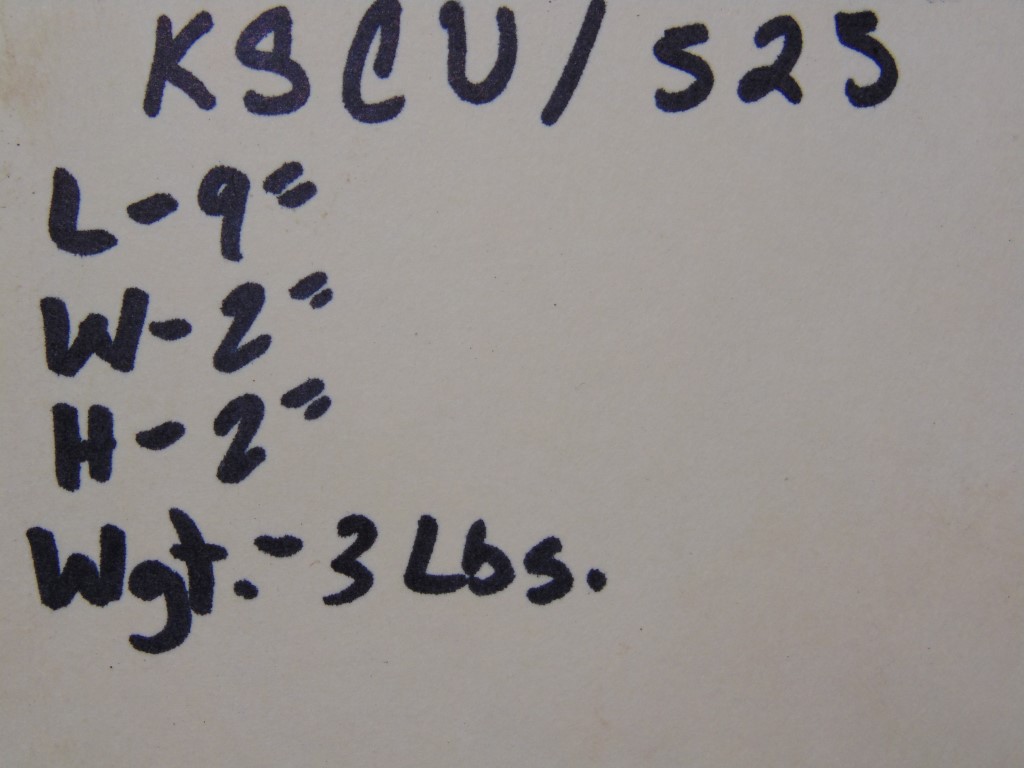 KSCU/525
L-9"
W-2"
H-2"
Wgt.-3 Lbs.